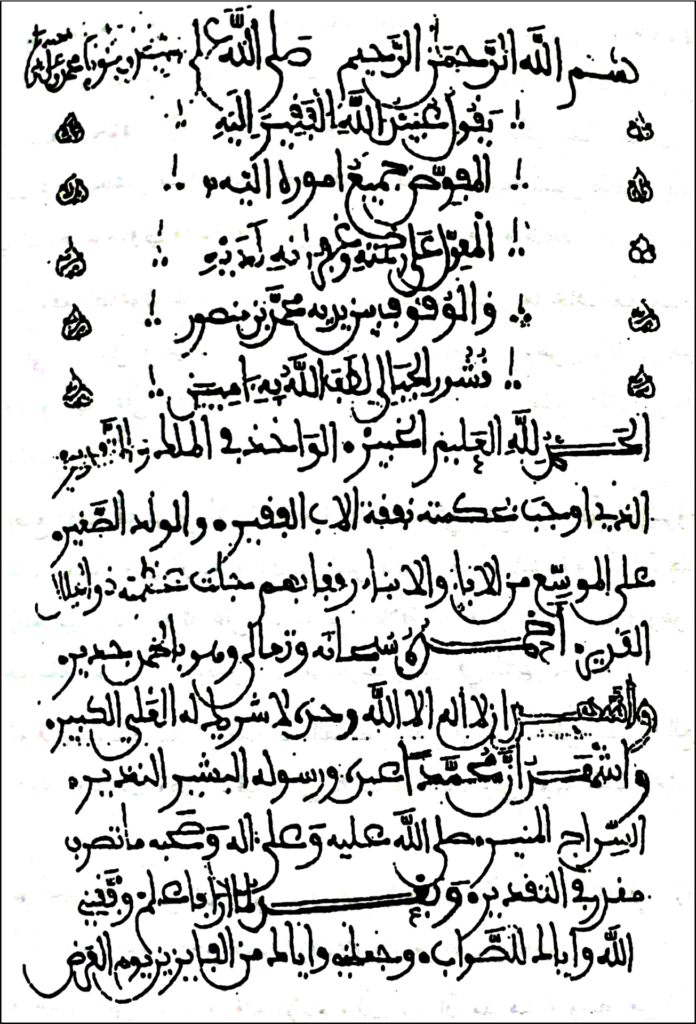 بسم الله الرحمن الرحيم صلى الله على سيدنا ومولانا محمد وعلى آله
يقول عبيد الله الفقير إليه
المفوض جميع أموره إليه
المعول على منه وغفرانه لديه
والوقوف بين يديه محمد بن منصور
الجبالي لطف الله به امين
الحمد لله العليم الخبير الواحد في الملك والتدبير
الذي اوجب بحكمته نفقة الاب الفقير والولد الصغير
على الموسع من الاباء والابناء رفقا بهم جلت عظمته
القدير أحمده سبحانه وتعالى وهو بالحمد جدير
وأشهد ان لا اله الا الله وحده لا شريك له العلي الكبير
واشهد أن محمدا عبده ورسوله البشير النذير
السراج المنير صلى الله عليه وعلى اله وصحبه ما تصرف
مقدر في التقدير وبعد اعلم وفقني
الله واياك للصواب وجعلني واياك من الفايزين يوم العرض